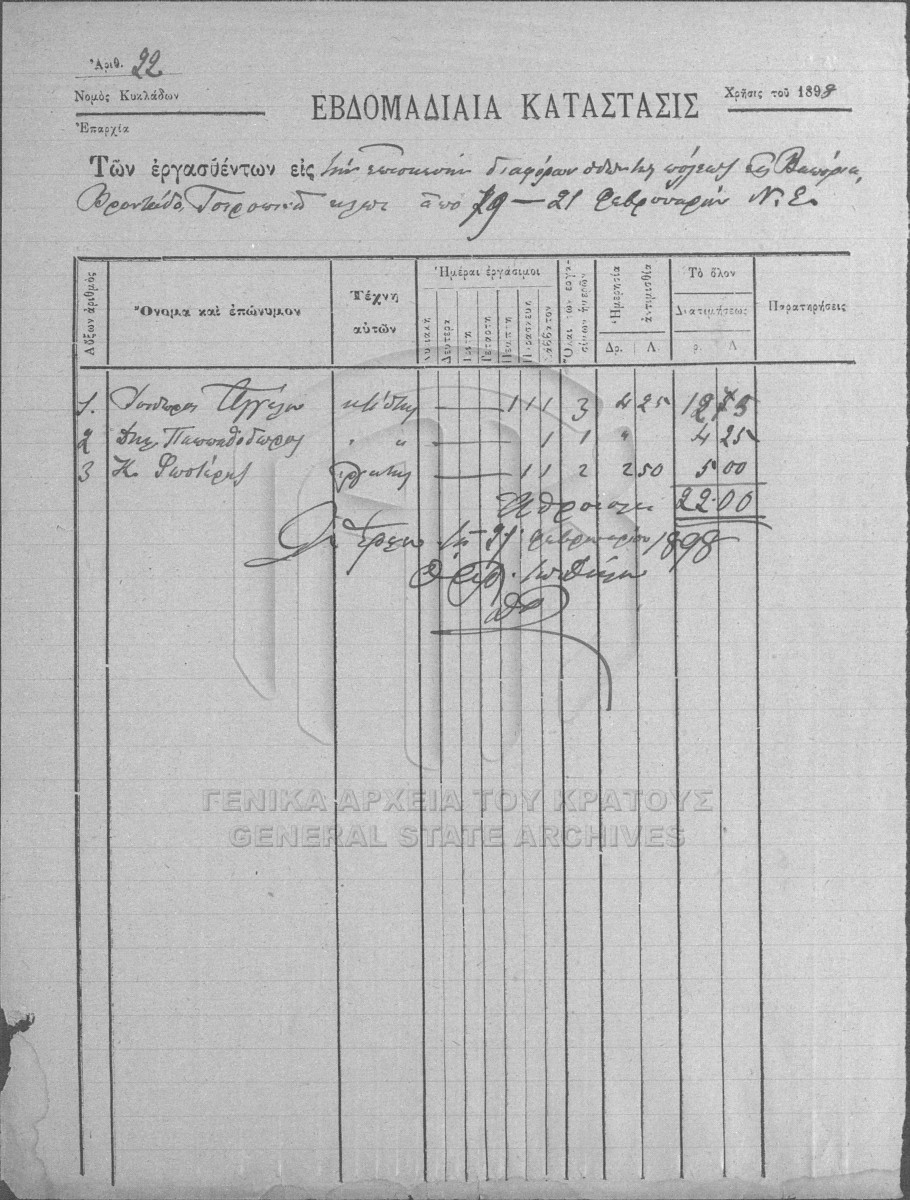 Ἀριθ. 22
Νομὸς Κυκλάδων
Ἐπαρχία
ΕΒΔΟΜΑΔΙΑΙΑ ΚΑΤΑΣΤΑΣΙΣ
Χρῆσις τοῦ 1898
Τῶν ἐργασθέντων εἰς τὴν ἐπισκευὴν διαφόρων ὁδῶν τῆς πόλεως εἰς Βαπόρια,
Βροντάδο, ἀπὸ 19 – 21 Φεβρουαρίου Ν. Ε.
Αὔξων ἀριθμὸς
Ὄνομα καὶ ἐπώνυμον
Τέχνη αὐτῶν
Ἡμέραι ἐργάσιμοι
Κυριακὴ Δευτέρα Τρίτη Τετάρτη Πέμπτη Παρασκευὴ Σάββατον
Ὅλαι τῶν ἐργασίμων ἡμερῶν
Ἡμερησία ἀντιμισθία
Δρ. Λ.
Τὸ ὅλον Διατιμήσεως
ρ. Λ
Παρατηρήσεις
1. Ἀγγέλου κτίστης 1 1 1 3 4 25 12 75
2 Δημ. Παπαθοδωρος " " 1 1 " 4 25
3 Κ. ἐργάτης 1 1 2 2 50 5 00
Ἄθροισμα 22.00
Ἐν τῇ 21 Φεβρουαρίου 1898
ΓΕΝΙΚΑ ΑΡΧΕΙΑ ΤΟΥ ΚΡΑΤΟΥΣ
GENERAL STATE ARCHIVES